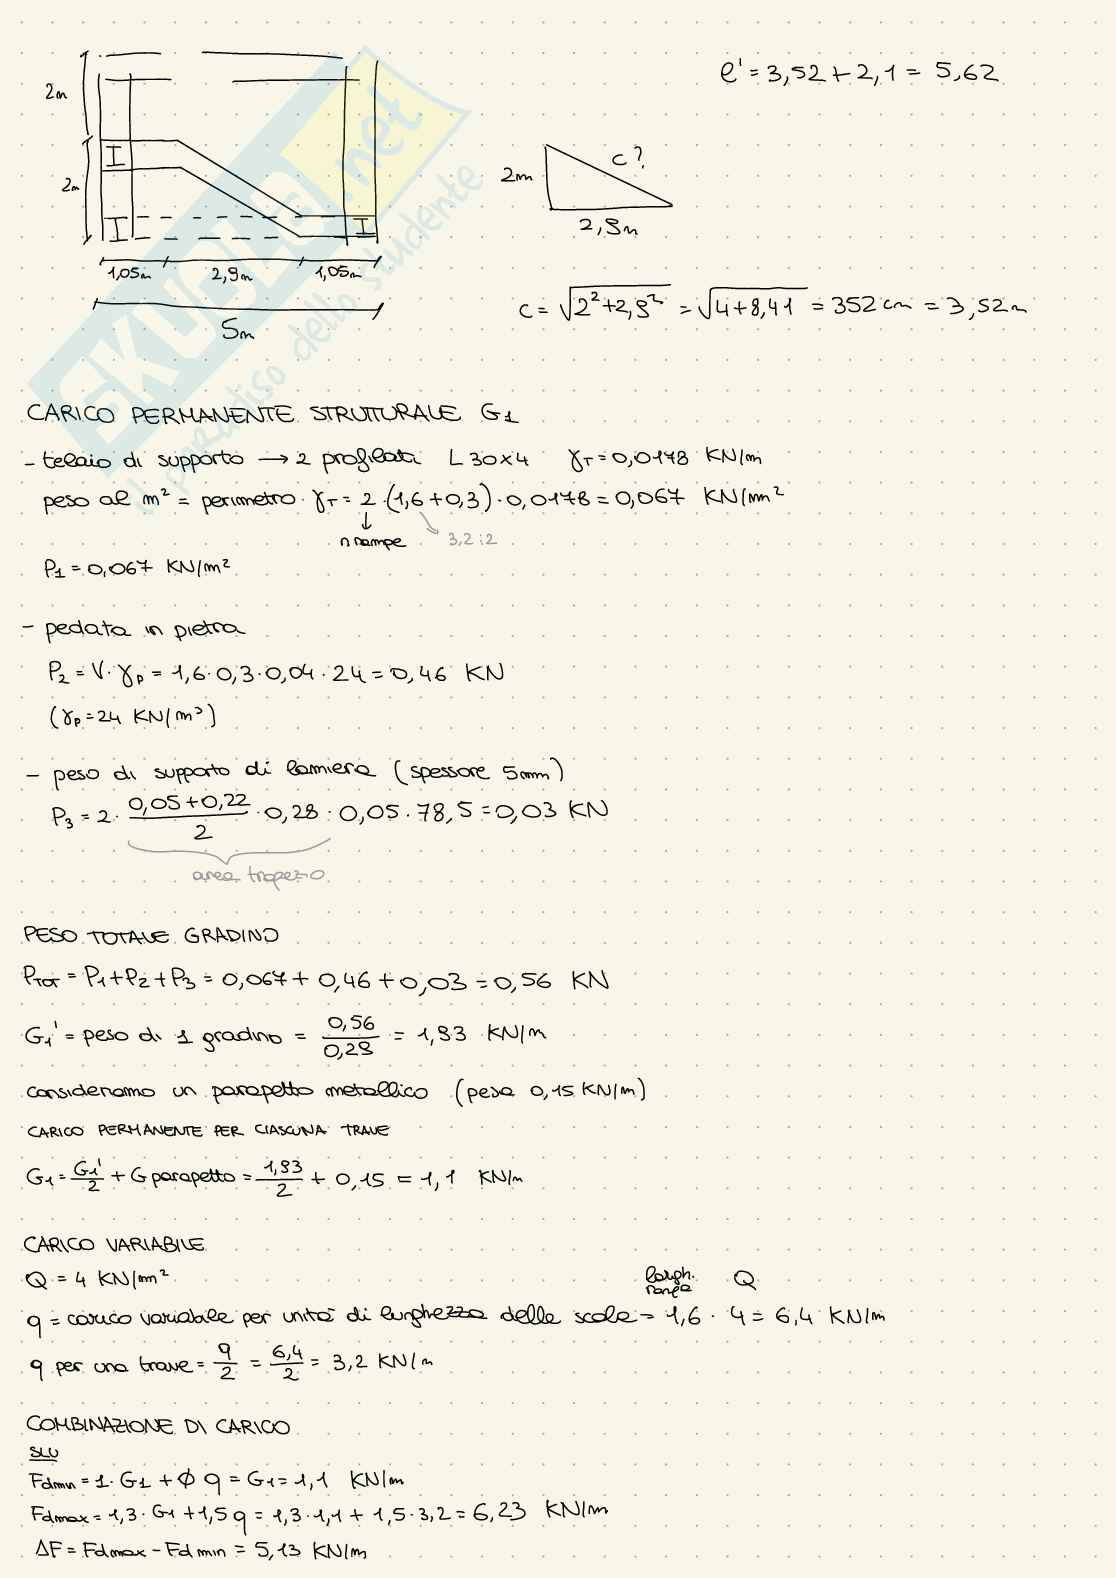 2m
2m
I
I
I
1,05m 2,9m 1,05m
5m
l' = 3,52 + 2,1 = 5,62
2m
c?
2,9m
c = √2²+2,9² = √4+8,41 = 352 cm = 3,52m
SKUOLA.net
il paradiso dello studente
CARICO PERMANENTE STRUTTURALE G1
- telaio di supporto → 2 profilati L 30x4 γT = 0,0178 KN/m
peso al m² = perimetro · γT = 2 · (1,6 + 0,3) · 0,0178 = 0,067 KN/m²
↓
n rampe 3,2 : 2
P1 = 0,067 KN/m²
- pedata in pietra
P2 = V · γp = 1,6 · 0,3 · 0,04 · 24 = 0,46 KN
(γp = 24 KN/m³)
- peso di supporto di lamiera (spessore 5mm)
P3 = 2 · (0,05 + 0,22)/2 · 0,28 · 0,05 · 78,5 = 0,03 KN
area trapezio
PESO TOTALE GRADINO
PTOT = P1 + P2 + P3 = 0,067 + 0,46 + 0,03 = 0,56 KN
G1' = peso di 1 gradino = 0,56/0,29 = 1,93 KN/m
consideriamo un parapetto metallico (pesa 0,15 KN/m)
CARICO PERMANENTE PER CIASCUNA TRAVE
G1 = G1'/2 + G parapetto = 1,93/2 + 0,15 = 1,1 KN/m
CARICO VARIABILE
Q = 4 KN/m²
largh. rampa Q
q = carico variabile per unità di lunghezza delle scale = 1,6 · 4 = 6,4 KN/m
q per una trave = q/2 = 6,4/2 = 3,2 KN/m
COMBINAZIONE DI CARICO
SLU
Fdmin = 1 · G1 + Ø q = G1 = 1,1 KN/m
Fdmax = 1,3 · G1 + 1,5 q = 1,3 · 1,1 + 1,5 · 3,2 = 6,23 KN/m
ΔF = Fdmax - Fd min = 5,13 KN/m